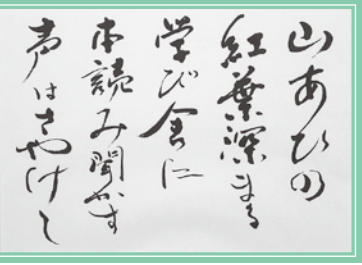 山あひの
紅葉深まる
学び舎に
本読み聞かす
声はさやけし